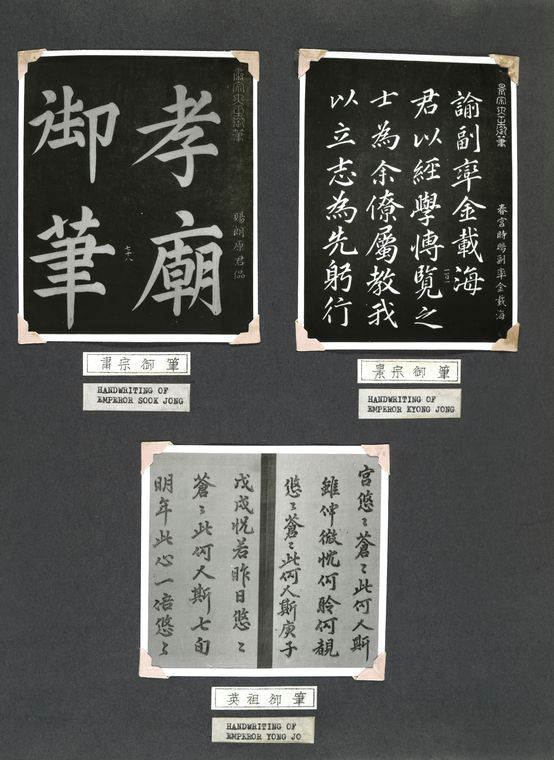 肅宗大王御筆
賜朗原君偘
孝廟
御筆
七十八
肅宗御筆
HANDWRITING OF
EMPEROR SOOK JONG
景宗大王御筆
春宮時賜副率金載海
諭副率金載海
君以經學博覽之
士為余僚屬教我
以立志為先躬行
景宗御筆
HANDWRITING OF
EMPEROR KYONG JONG
宮悠〻蒼〻此何人斯
雖伸微忱何聆何覩
悠〻蒼〻此何人斯庚子
戊戌怳若昨日悠〻
蒼〻此何人斯七旬
明年此心一倍悠〻
英祖御筆
HANDWRITING OF
EMPEROR YONG JO